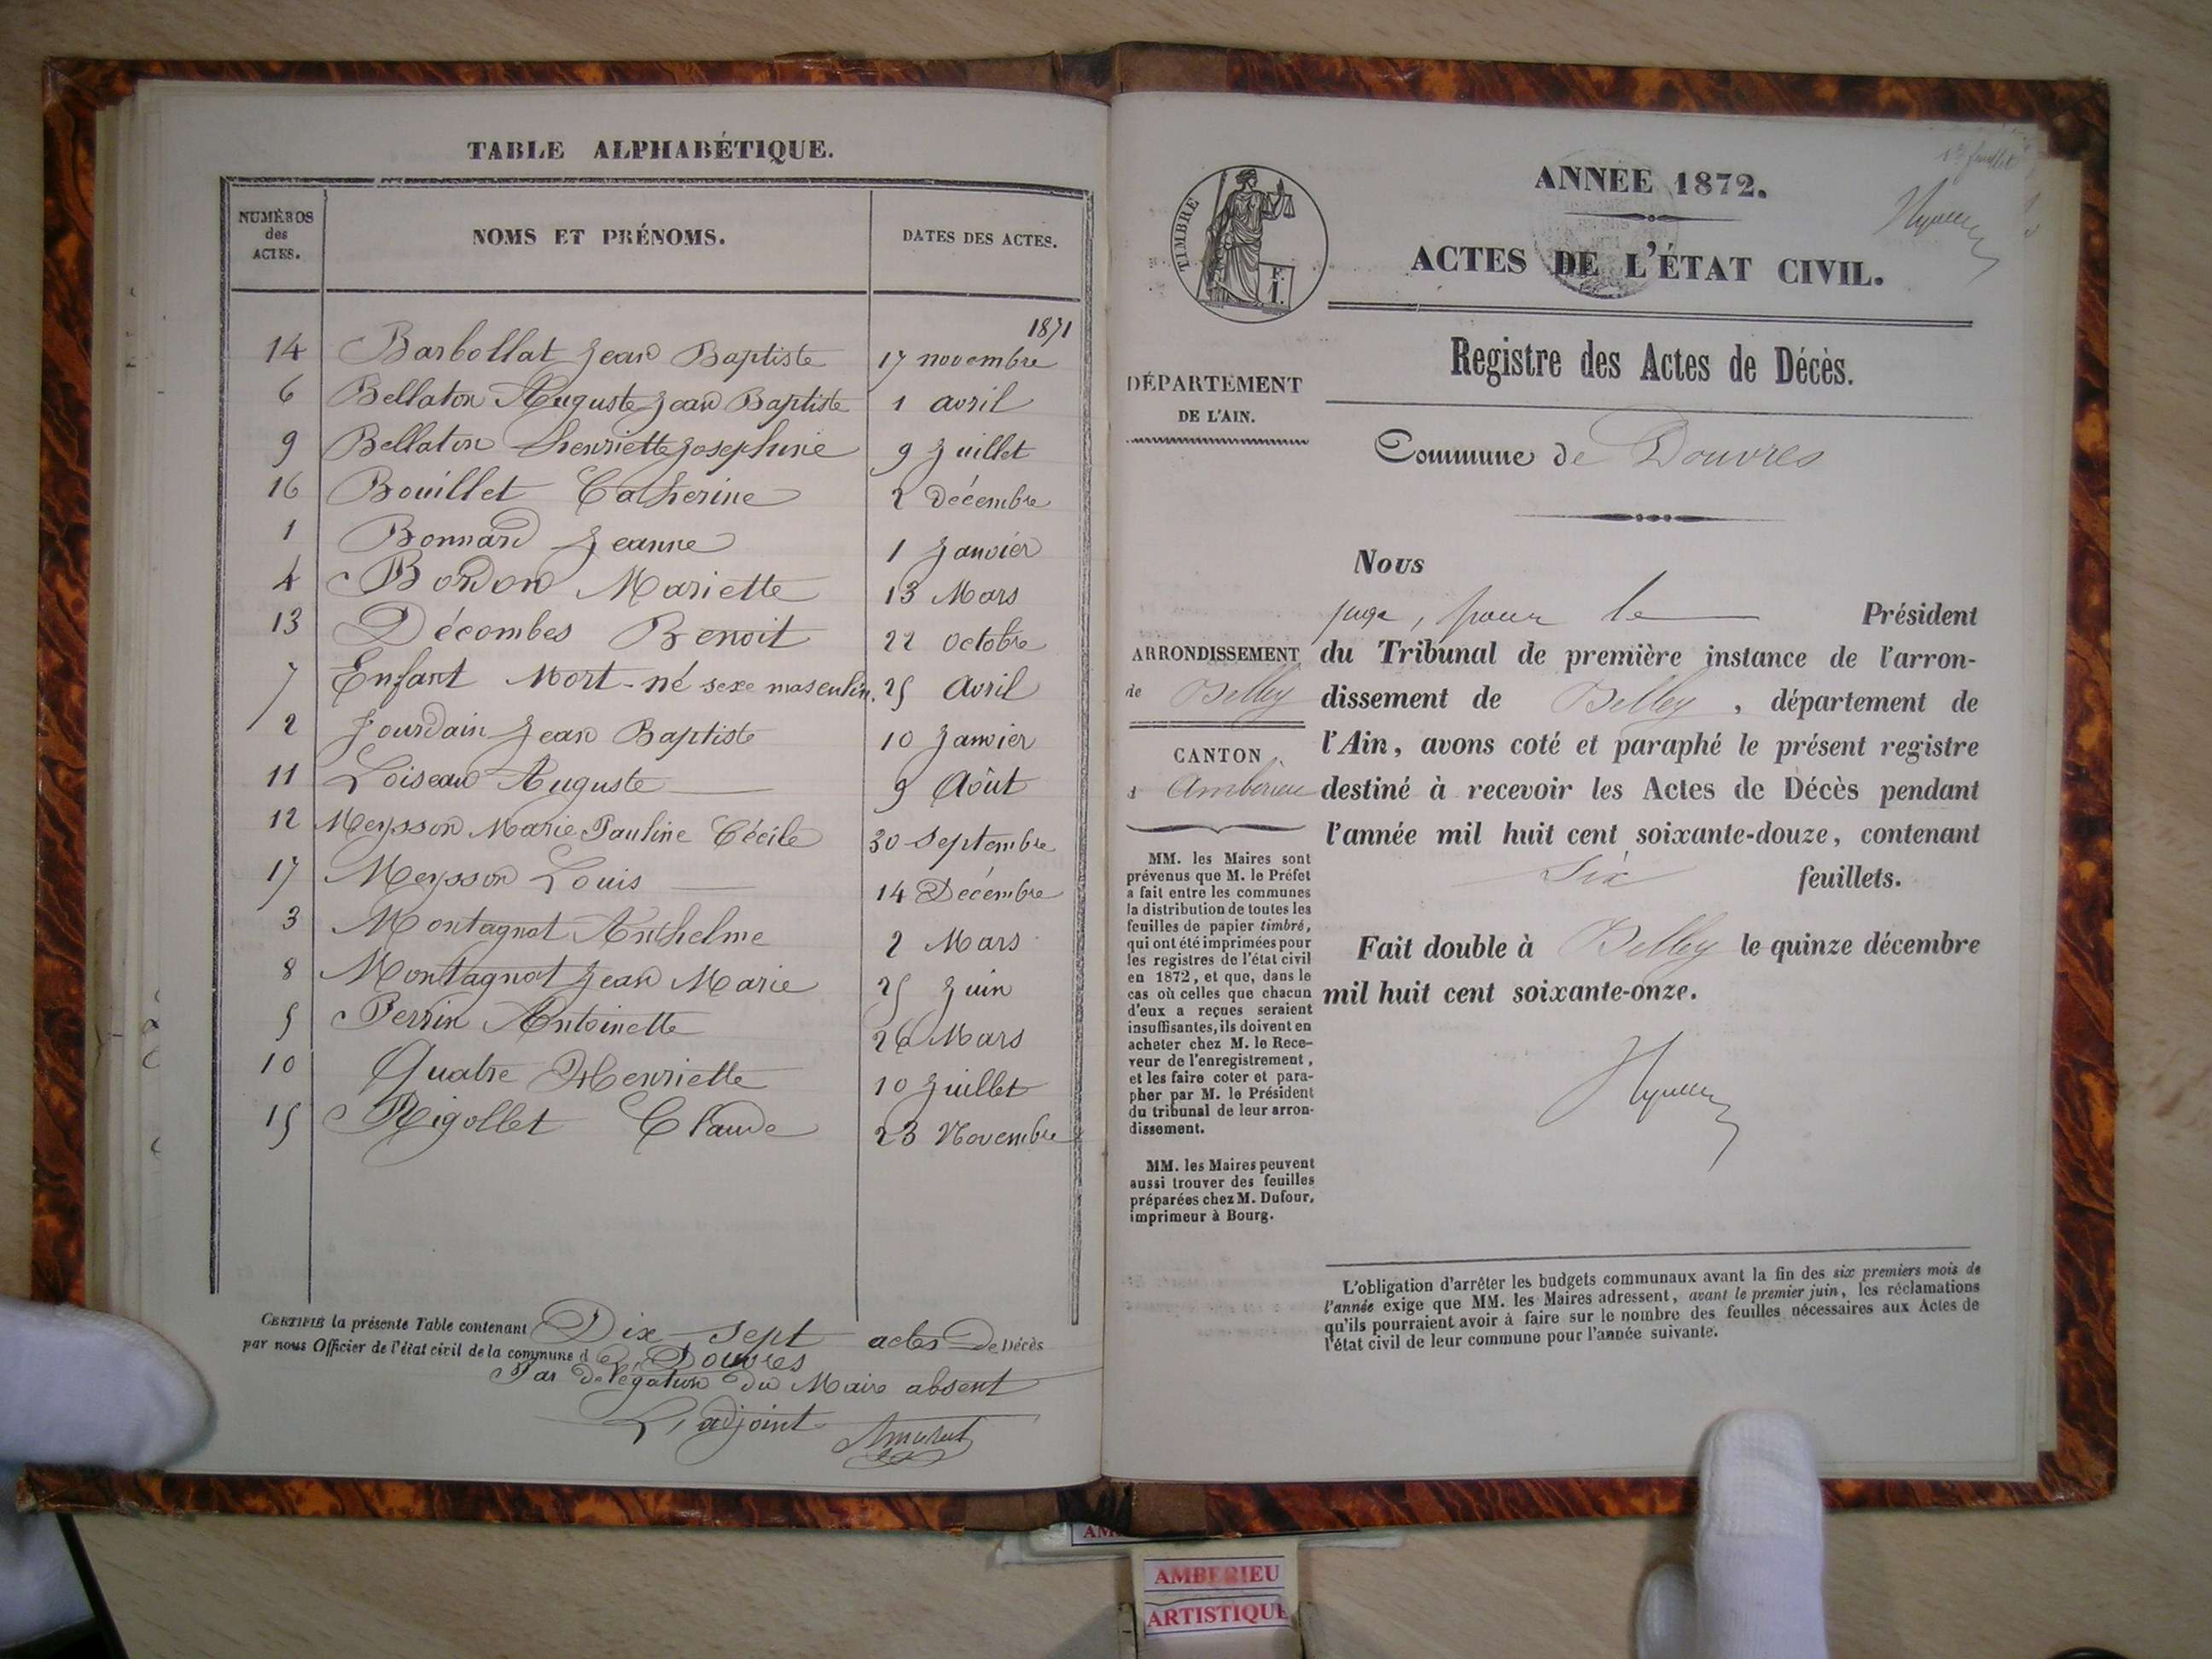 TABLE ALPHABÉTIQUE.
NUMÉROS des ACTES. NOMS ET PRÉNOMS. DATES DES ACTES.
1871
14 Barbollat Jean Baptiste 17 novembre
6 Bellaton Auguste Jean Baptiste 1 avril
9 Bellaton henriette Josephine 9 Juillet
16 Bouillet Catherine 2 Décembre
1 Bonnard Jeanne 1 Janvier
4 Bordon Mariette 13 Mars
13 Décombes Benoit 22 Octobre
7 Enfant Mort-né sexe masculin. 25 Avril
2 Jourdain Jean Baptiste 10 Janvier
11 Loiseau Auguste 9 Août
12 Meysson Marie Pauline Cécile 30 Septembre
17 Meysson Louis 14 Décembre
3 Montagnat Anthelme 2 Mars
8 Montagnat Jean Marie 25 Juin
5 Perrin Antoinette 26 Mars
10 Quatre Henriette 10 Juillet
15 Rigollet Claude 23 Novembre
CERTIFIÉ la présente Table contenant Dix-Sept actes De Décès
par nous Officier de l'état civil de la commune de Douvres
Par Délégation du Maire absent
L'adjoint
1er feuillet
TIMBRE
F. I.
ANNÉE 1872.
ACTES DE L'ÉTAT CIVIL.
Registre des Actes de Décès.
DÉPARTEMENT
DE L'AIN.
Commune de Douvres
ARRONDISSEMENT
de Belley
CANTON
d Ambérieu
MM. les Maires sont
prévenus que M. le Préfet
a fait entre les communes
la distribution de toutes les
feuilles de papier timbré,
qui ont été imprimées pour
les registres de l'état civil
en 1872, et que, dans le
cas où celles que chacun
d'eux a reçues seraient
insuffisantes, ils doivent en
acheter chez M. le Rece-
veur de l'enregistrement,
et les faire coter et para-
pher par M. le Président
du tribunal de leur arron-
dissement.
MM. les Maires peuvent
aussi trouver des feuilles
préparées chez M. Dufour,
imprimeur à Bourg.
Nous
juge, pour le Président
du Tribunal de première instance de l'arron-
dissement de Belley, département de
l'Ain, avons coté et paraphé le présent registre
destiné à recevoir les Actes de Décès pendant
l'année mil huit cent soixante-douze, contenant
Six feuillets.
Fait double à Belley le quinze décembre
mil huit cent soixante-onze.
L'obligation d'arrêter les budgets communaux avant la fin des six premiers mois de
l'année exige que MM. les Maires adressent, avant le premier juin, les réclamations
qu'ils pourraient avoir à faire sur le nombre des feuilles nécessaires aux Actes de
l'état civil de leur commune pour l'année suivante.
AMBERIEU
ARTISTIQUE